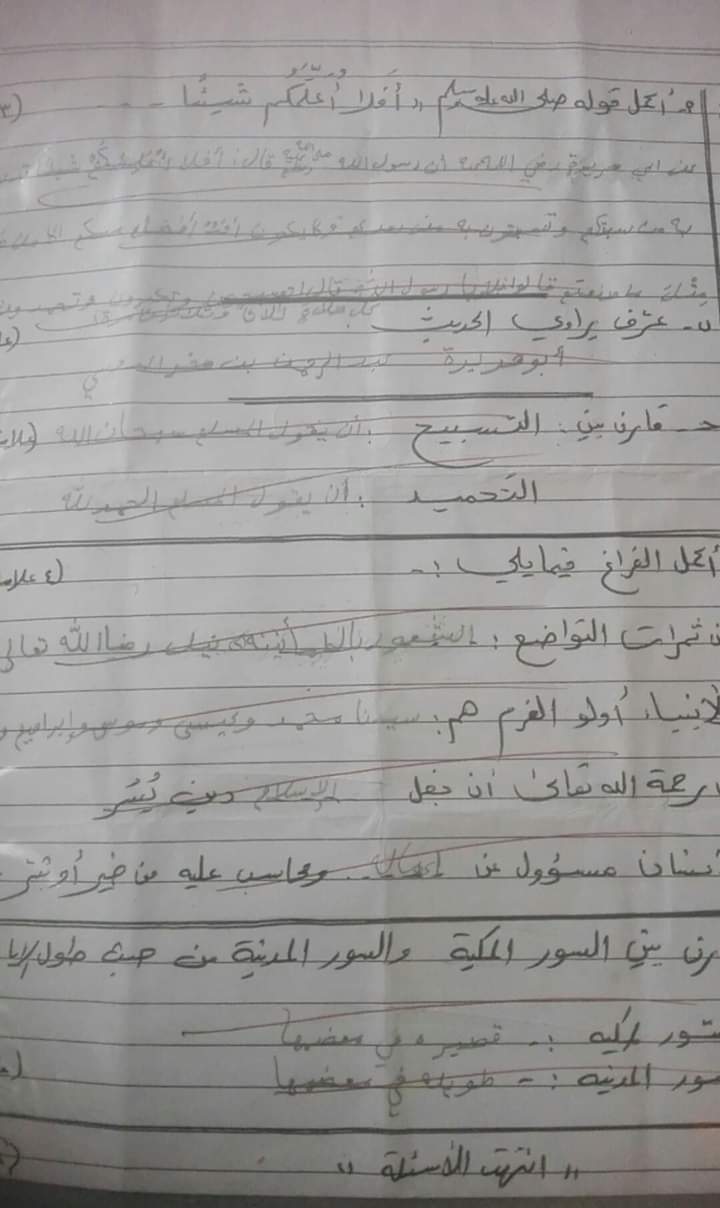 أكمل قوله صلى الله عليه وسلم " أفلا أعلمكم شيئًا - -
عن ابي هريرة رضي الله عنه أن رسول الله صلى الله عليه وسلم قال: أفلا أعلمكم شيئا
به من سبقكم وتسبقون به من بعدكم ولا يكون أحد أفضل منكم الا من
مثل ما صنعتم قالوا بلى يا رسول الله قال تسبحون وتكبرون وتحمدون
كل صلاة ثلاثا وثلاثين
عرّف براوي الحديث
أبو هريرة عبد الرحمن بن صخر
قارن بين: التسبيح : أن يقول المسلم سبحان الله
التحميد : أن يقول المسلم الحمد لله
أكمل الفراغ فيما يلي :- (٤
ثمرات التواضع : الشعور بالطمأنينة، نيل رضا الله تعالى
أولو العزم هم: سيدنا محمد وعيسى وموسى وإبراهيم
رحمة الله تعالى أن جعل الإسلام دين يُسْر
مسؤول عن اعماله ومحاسب عليه من خير أو شر
بين السور المكية والسور المدنية من حيث طول
المكيه :- قصيره في معضمها
المدنيه :- طويله في معضمها
" انتهت الأسئلة "